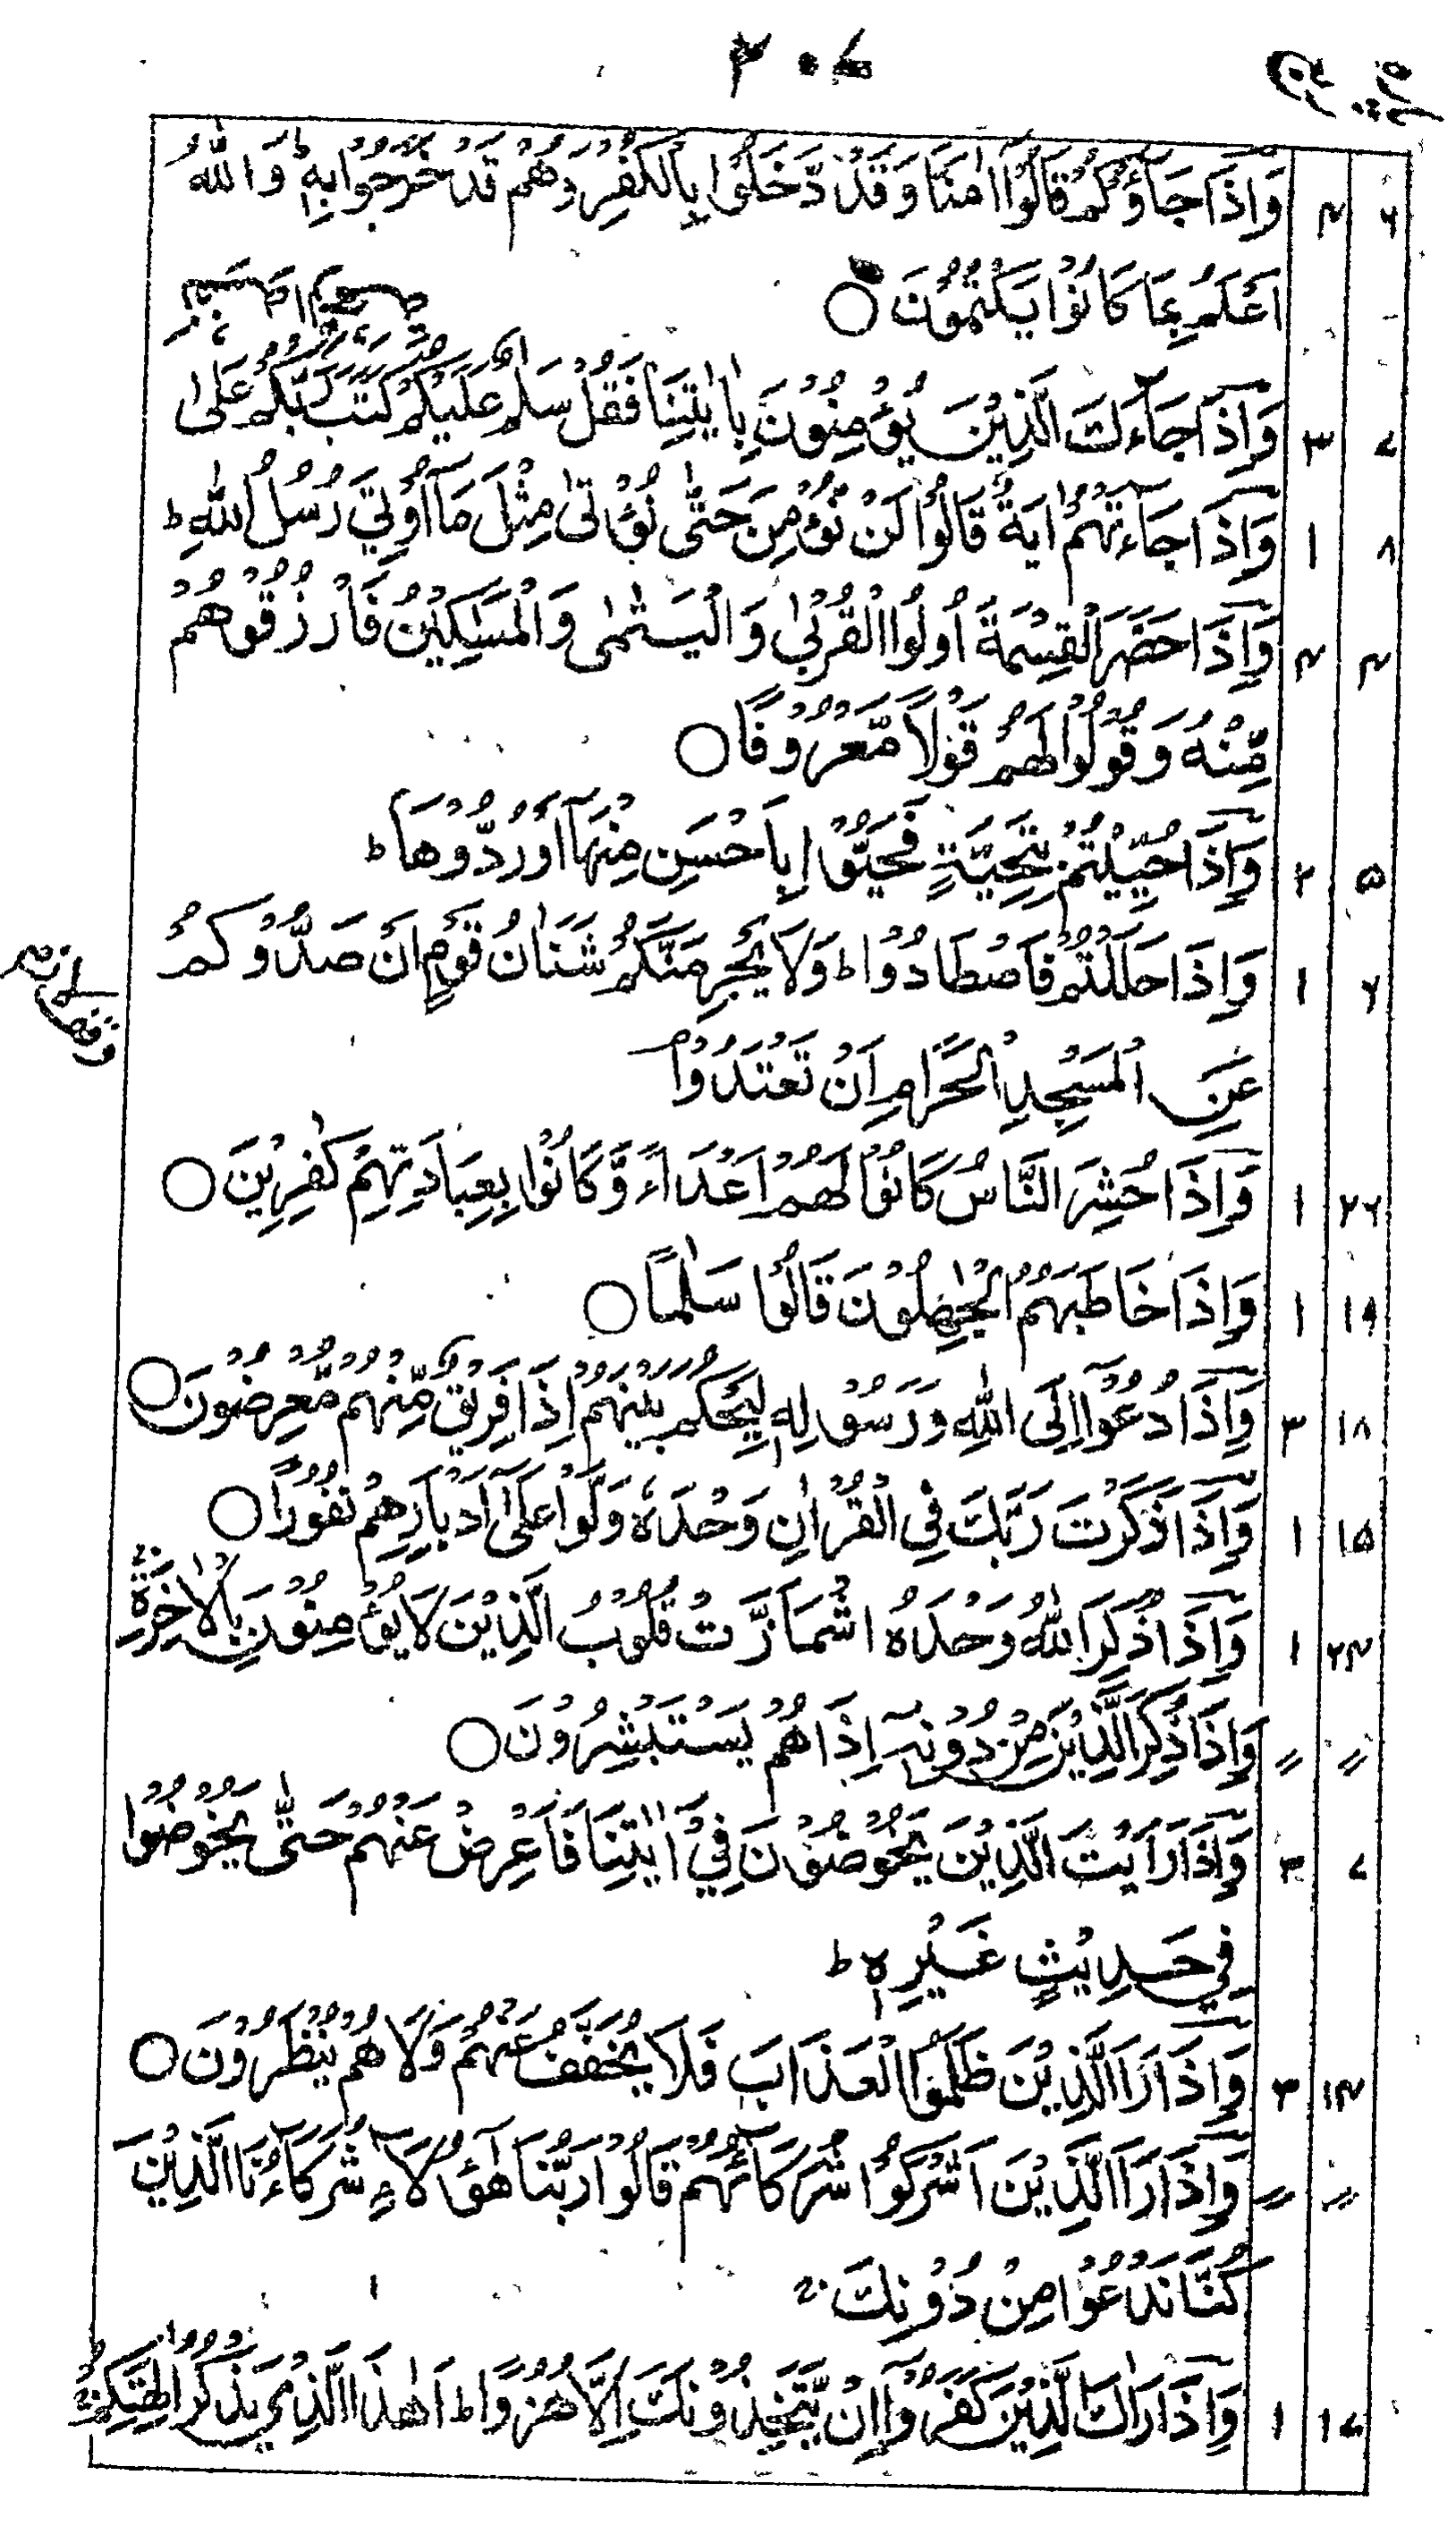 ۳۰۷
۶ ۴ وَاِذَا جَآءُوْكُمْ قَالُوْۤا اٰمَنَّا وَقَدْ دَّخَلُوْا بِالْكُفْرِ وَهُمْ قَدْ خَرَجُوْا بِهٖ ؕ وَاللّٰهُ
اَعْلَمُ بِمَا كَانُوْا يَكْتُمُوْنَ ○
۷ ۳ وَاِذَا جَآءَكَ الَّذِيْنَ يُؤْمِنُوْنَ بِاٰيٰتِنَا فَقُلْ سَلٰمٌ عَلَيْكُمْ كَتَبَ رَبُّكُمْ عَلٰى
۸ ۱ وَاِذَا جَآءَتْهُمْ اٰيَةٌ قَالُوْا لَنْ نُّؤْمِنَ حَتّٰى نُؤْتٰى مِثْلَ مَاۤ اُوْتِيَ رُسُلُ اللّٰهِ ؕ
۴ ۴ وَاِذَا حَضَرَ الْقِسْمَةَ اُولُوا الْقُرْبٰى وَالْيَتٰمٰى وَالْمَسٰكِيْنُ فَارْزُقُوْهُمْ
مِّنْهُ وَقُوْلُوْا لَهُمْ قَوْلًا مَّعْرُوْفًا ○
۵ ۲ وَاِذَا حُيِّيْتُمْ بِتَحِيَّةٍ فَحَيُّوْا بِاَحْسَنَ مِنْهَاۤ اَوْ رُدُّوْهَا ؕ
۶ ۱ وَاِذَا حَلَلْتُمْ فَاصْطَادُوْا ؕ وَلَا يَجْرِمَنَّكُمْ شَنَاٰنُ قَوْمٍ اَنْ صَدُّوْكُمْ
عَنِ الْمَسْجِدِ الْحَرَامِ اَنْ تَعْتَدُوْا
۲۶ ۱ وَاِذَا حُشِرَ النَّاسُ كَانُوْا لَهُمْ اَعْدَآءً وَّكَانُوْا بِعِبَادَتِهِمْ كٰفِرِيْنَ ○
۱۹ ۱ وَاِذَا خَاطَبَهُمُ الْجٰهِلُوْنَ قَالُوْا سَلٰمًا ○
۱۸ ۳ وَاِذَا دُعُوْۤا اِلَى اللّٰهِ وَرَسُوْلِهٖ لِيَحْكُمَ بَيْنَهُمْ اِذَا فَرِيْقٌ مِّنْهُمْ مُّعْرِضُوْنَ ○
۱۵ ۱ وَاِذَا ذَكَرْتَ رَبَّكَ فِي الْقُرْاٰنِ وَحْدَهٗ وَلَّوْا عَلٰۤى اَدْبَارِهِمْ نُفُوْرًا ○
۲۴ ۱ وَاِذَا ذُكِرَ اللّٰهُ وَحْدَهُ اشْمَاَزَّتْ قُلُوْبُ الَّذِيْنَ لَا يُؤْمِنُوْنَ بِالْاٰخِرَةِ
〃 〃 وَاِذَا ذُكِرَ الَّذِيْنَ مِنْ دُوْنِهٖۤ اِذَا هُمْ يَسْتَبْشِرُوْنَ ○
۷ ۳ وَاِذَا رَاَيْتَ الَّذِيْنَ يَخُوْضُوْنَ فِيْۤ اٰيٰتِنَا فَاَعْرِضْ عَنْهُمْ حَتّٰى يَخُوْضُوْا
فِيْ حَدِيْثٍ غَيْرِهٖ ؕ
۱۴ ۳ وَاِذَا رَاَ الَّذِيْنَ ظَلَمُوا الْعَذَابَ فَلَا يُخَفَّفُ عَنْهُمْ وَلَا هُمْ يُنْظَرُوْنَ ○
〃 〃 وَاِذَا رَاَ الَّذِيْنَ اَشْرَكُوْا شُرَكَآءَهُمْ قَالُوْا رَبَّنَا هٰۤؤُلَآءِ شُرَكَآؤُنَا الَّذِيْنَ
كُنَّا نَدْعُوْا مِنْ دُوْنِكَ
۱۷ ۱ وَاِذَا رَاٰكَ الَّذِيْنَ كَفَرُوْۤا اِنْ يَّتَّخِذُوْنَكَ اِلَّا هُزُوًا ؕ اَهٰذَا الَّذِيْ يَذْكُرُ اٰلِهَتَكُمْ